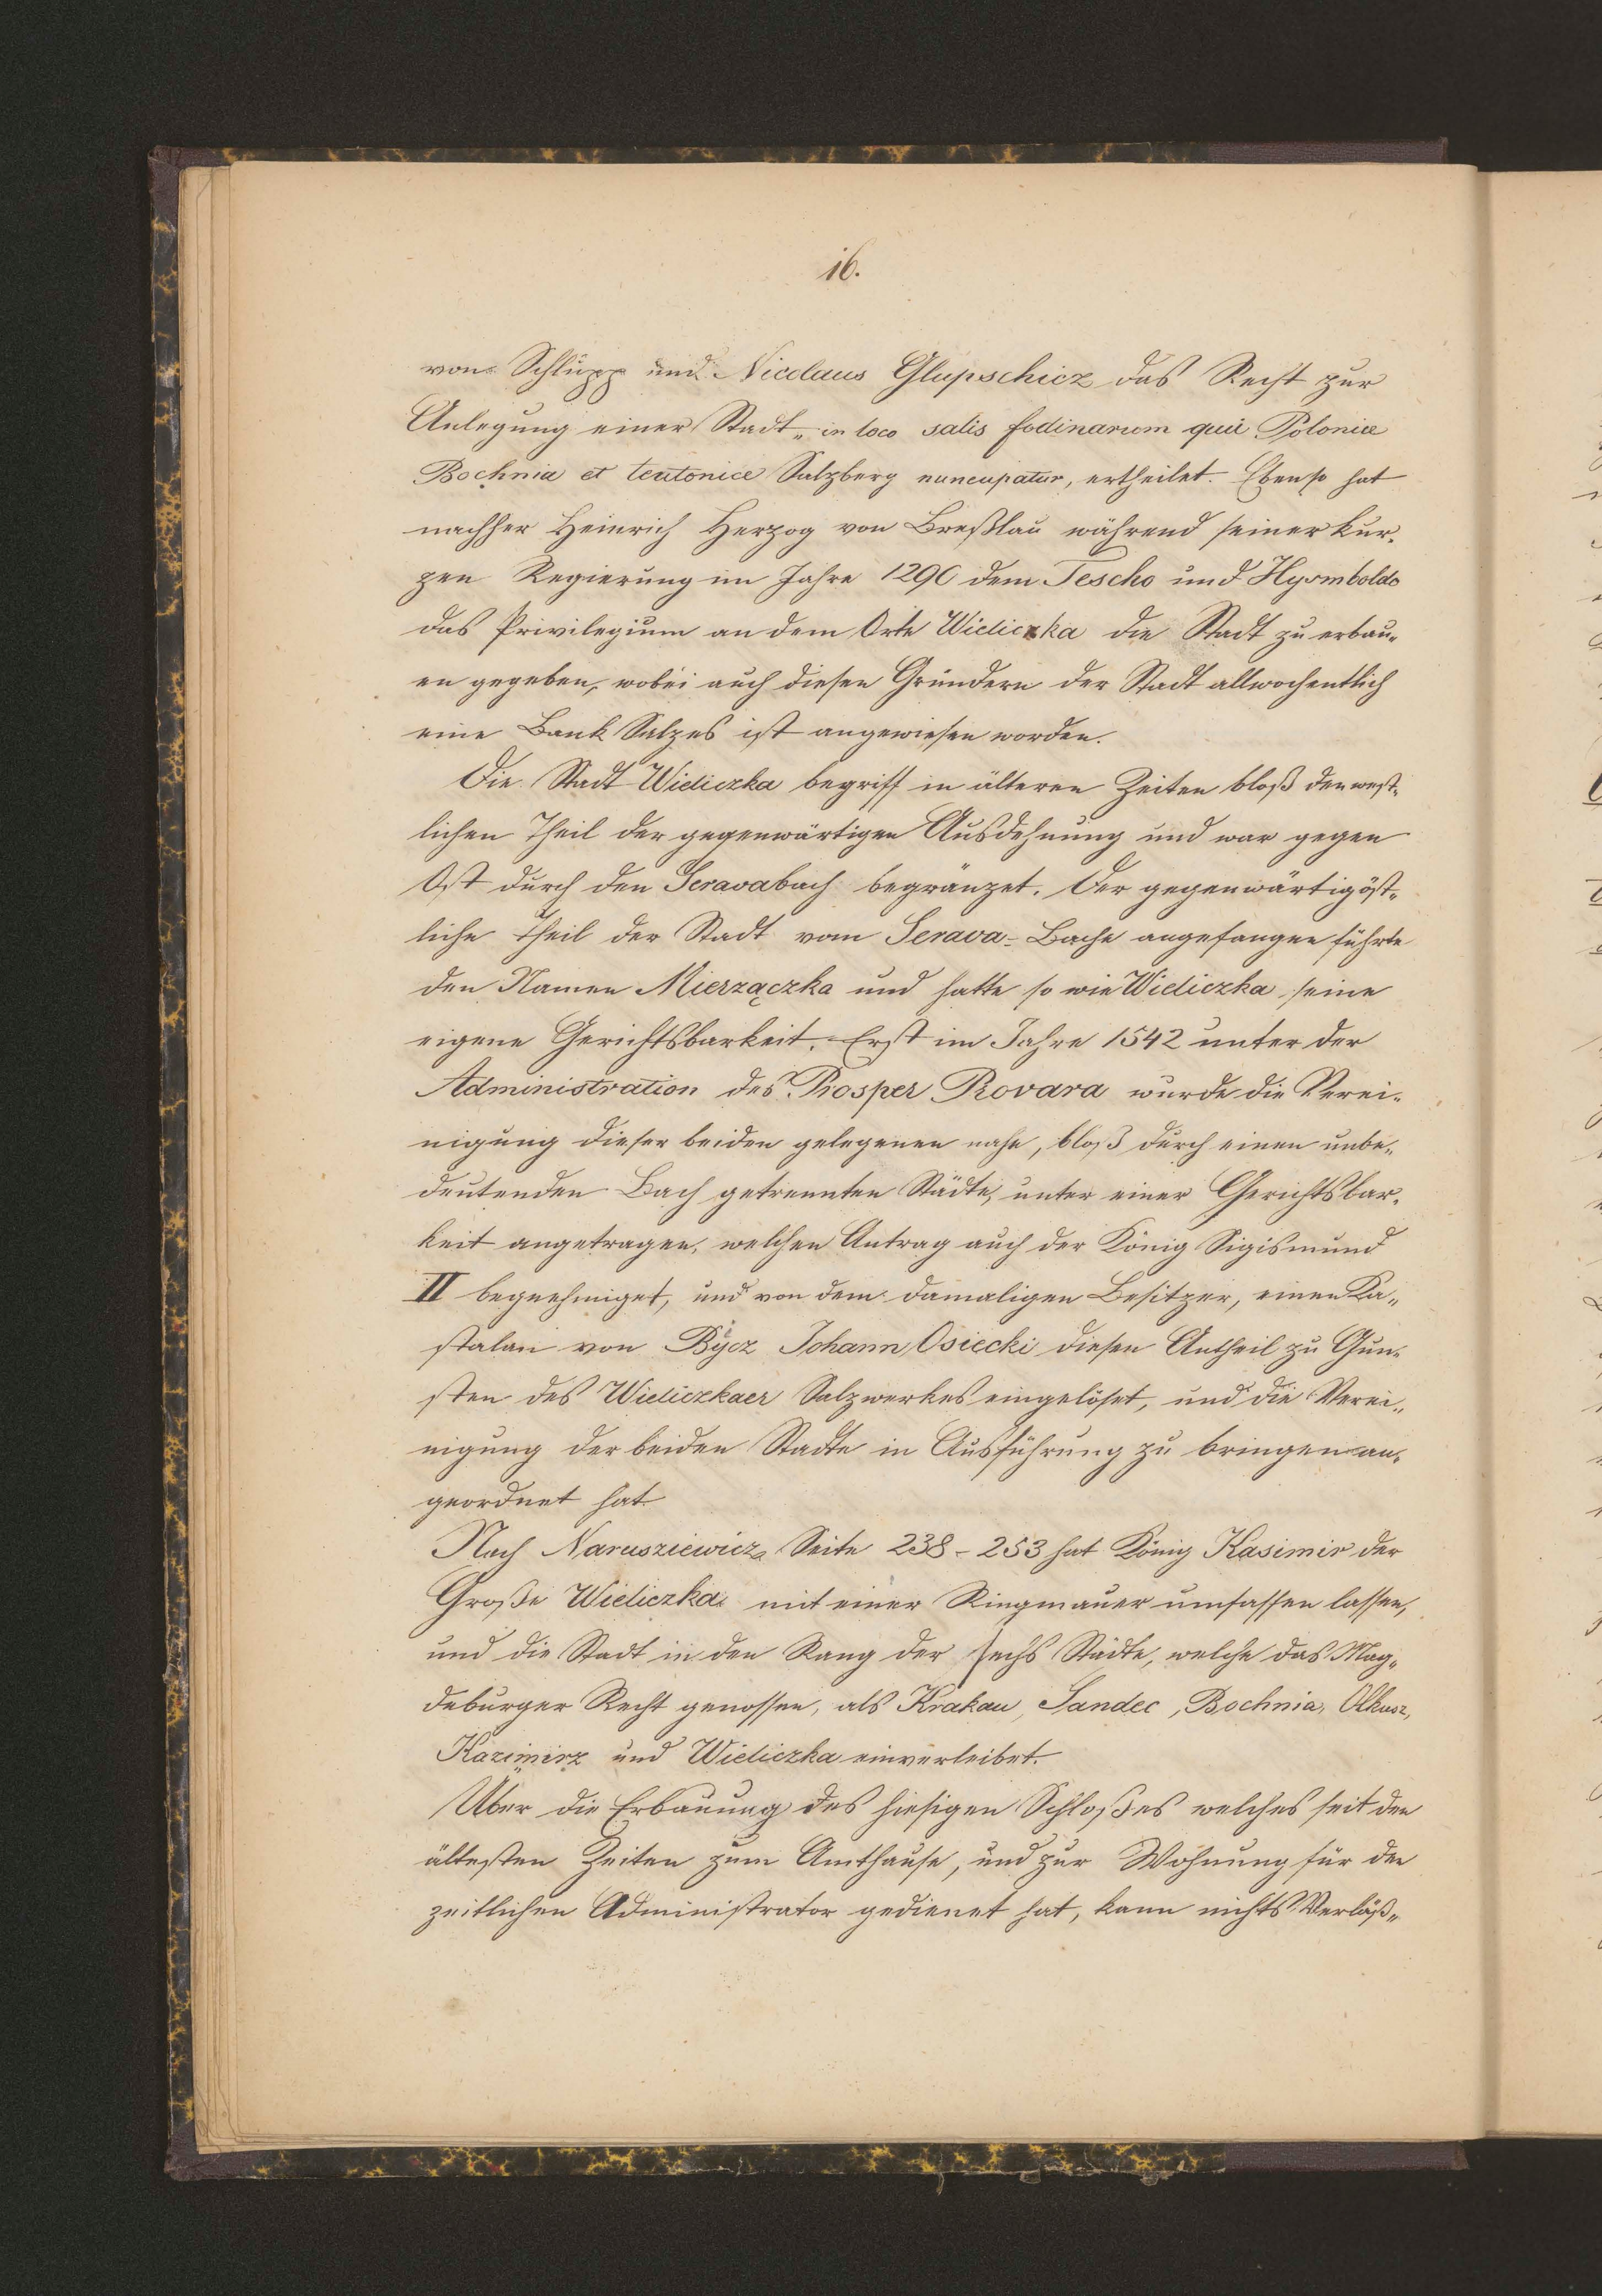 16.
von Schlupp und Nicolaus Glupschicz das Recht zur
Anlegung einer Stadt „in loco salis fodinarum qui Polonice
Bochnia et teutonice Salzberg nuncupatur, ertheilet. Ebenso hat
nachher Heinrich Herzog von Breßlau während seiner kur-
zen Regierung im Jahre 1290 dem Jescho und Hysmboldo
das Privilegium an dem Orte Wieliczka die Stadt zu erbau-
en gegeben, wobei auch diesen Gründern der Stadt allwochentlich
eine Bank Salzes ist angewiesen worden.
Die Stadt Wieliczka begriff in älteren Zeiten bloß den west-
lichen Theil der gegenwärtigen Ausdehnung und war gegen
Ost durch den Seravabach begränzet. Der gegenwärtig öst-
liche Theil der Stadt vom Serava-Bache angefangen führte
den Namen Mierzączka und hatte so wie Wieliczka seine
eigene Gerichtsbarkeit. Erst im Jahre 1542 unter der
Administration des Prosper Provara wurde die Verei-
nigung dieser beiden gelegenen nahe, bloß durch einen unbe-
deutenden Bach getrennten Städte, unter einer Gerichtsbar-
keit angetragen, welchen Antrag auch der König Sigismund
II begnehmiget, und von dem damaligen Besitzer, einen Ka-
stalan von Bÿcz Johann Osiecki diesen Antheil zu Gun-
sten des Wieliczkaer Salzwerkes eingelöset, und die Verei-
nigung der beiden Stadte in Ausführung zu bringen an-
geordnet hat
Nach Narusziewicz Seite 238-253 hat König Kasimir der
Große Wieliczka mit einer Ringmauer umfassen lassen,
und die Stadt in den Rang der sechs Städte, welche das Mag-
deburger Recht genossen, als Krakau, Sandec, Bochnia, Olkusz,
Kazimirz und Wieliczka einverleibet.
Über die Erbauung des hiesigen Schloßes welches seit den
ältesten Zeiten zum Amthause, und zur Wohnung für den
zeitlichen Administrator gedienet hat, kann nichts Verläß-